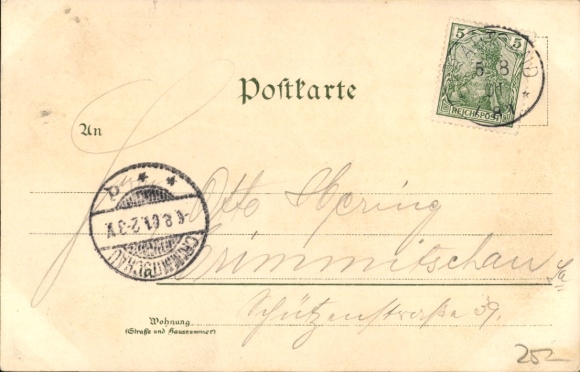 5 5
REICHSPOST
5 8
Postkarte
An
Otto Hering
Crimmitschau
Sa
Schützenstraße 39.
* * b
6.8.01.2-3N.
CRIMMITSCHAU
Wohnung
(Straße und Hausnummer)
252